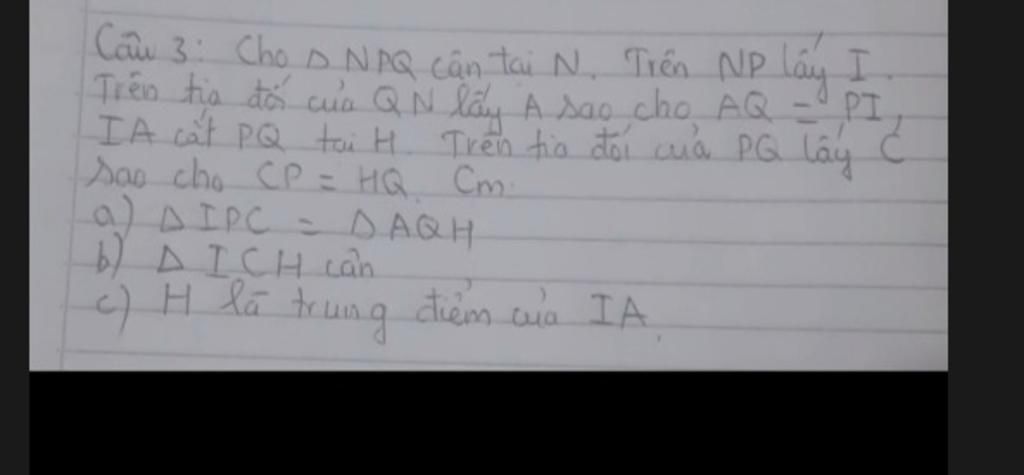 Câu 3: Cho Δ NPQ cân tại N. Trên NP lấy I.
Trên tia đối của QN lấy A sao cho AQ = PI,
IA cắt PQ tại H. Trên tia đối của PQ lấy C
sao cho CP = HQ. Cm.
a) Δ IPC = Δ AQH
b) Δ ICH cân
c) H là trung điểm của IA.